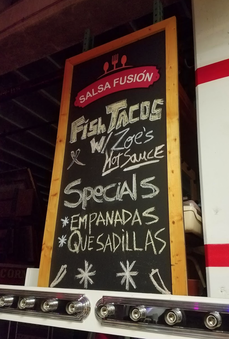 SALSA FUSIÓN
Fish Tacos
w/ Zoe's
Hot Sauce
Specials
*EMPANADAS
*QUESADILLAS